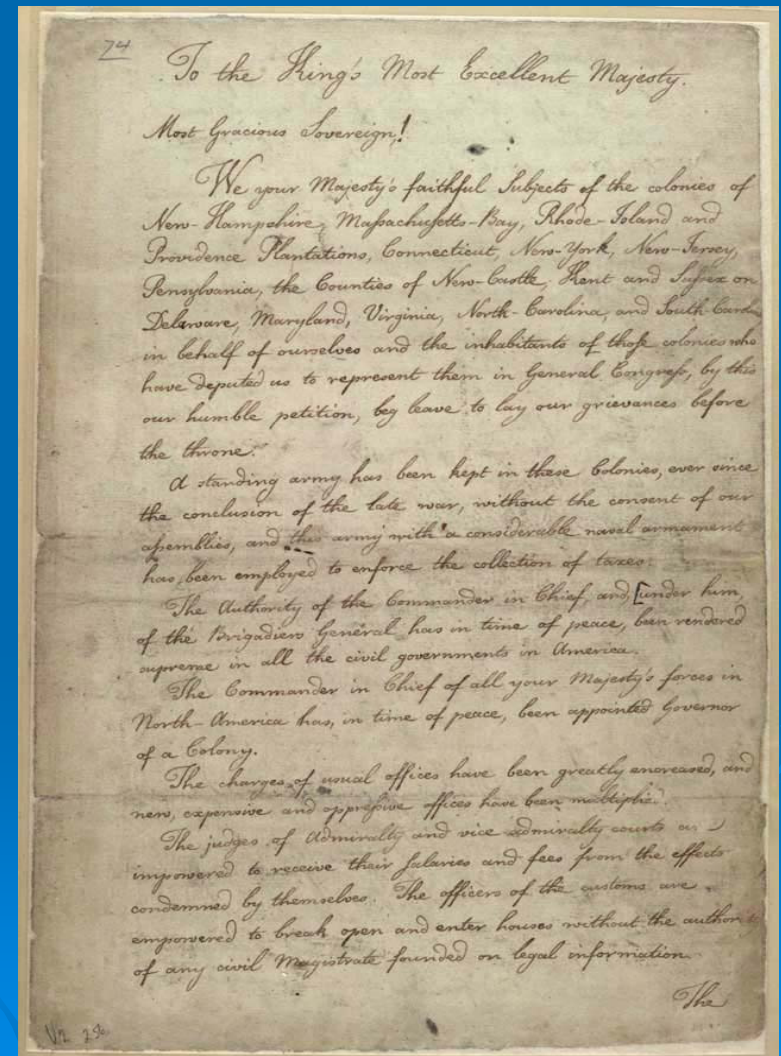 74
To the King's Most Excellent Majesty.
Most Gracious Sovereign!
We your Majesty's faithful Subjects of the colonies of
New-Hampshire, Massachusetts-Bay, Rhode-Island and
Providence Plantations, Connecticut, New-York, New-Jersey,
Pensylvania, the Counties of New-Castle, Kent and Sussex on
Delaware, Maryland, Virginia, North-Carolina, and South-Carolina
in behalf of ourselves and the inhabitants of those colonies who
have deputed us to represent them in General Congress, by this
our humble petition, beg leave to lay our grievances before
the throne.
A standing army has been kept in these Colonies, ever since
the conclusion of the late war, without the consent of our
assemblies, and this army with a considerable naval armament
has been employed to enforce the collection of taxes.
The Authority of the Commander in Chief, and, [under him,
of the Brigadiers General has in time of peace, been rendered
supreme in all the civil governments in America.
The Commander in Chief of all your Majesty's forces in
North-America has, in time of peace, been appointed Governor
of a Colony.
The charges of usual offices have been greatly encreased, and
new, expensive and oppressive offices have been multiplied.
The judges of Admiralty and vice admiralty courts are
impowered to receive their salaries and fees from the effects
condemned by themselves. The officers of the customs are
empowered to break open and enter houses without the authority
of any civil Magistrate founded on legal information.
The